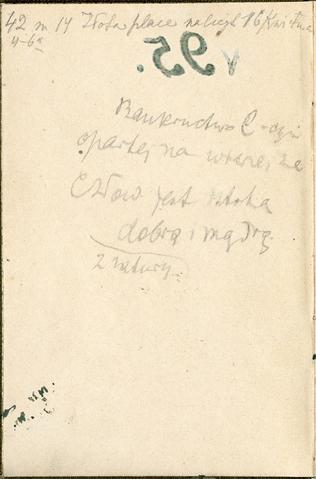 42 m 14 Wola place na 16 Kwietnia
4-6
v 95.
Bankructwo
opartej na wierze, że
Człow jest istotą
dobrą i mądrą
z natury